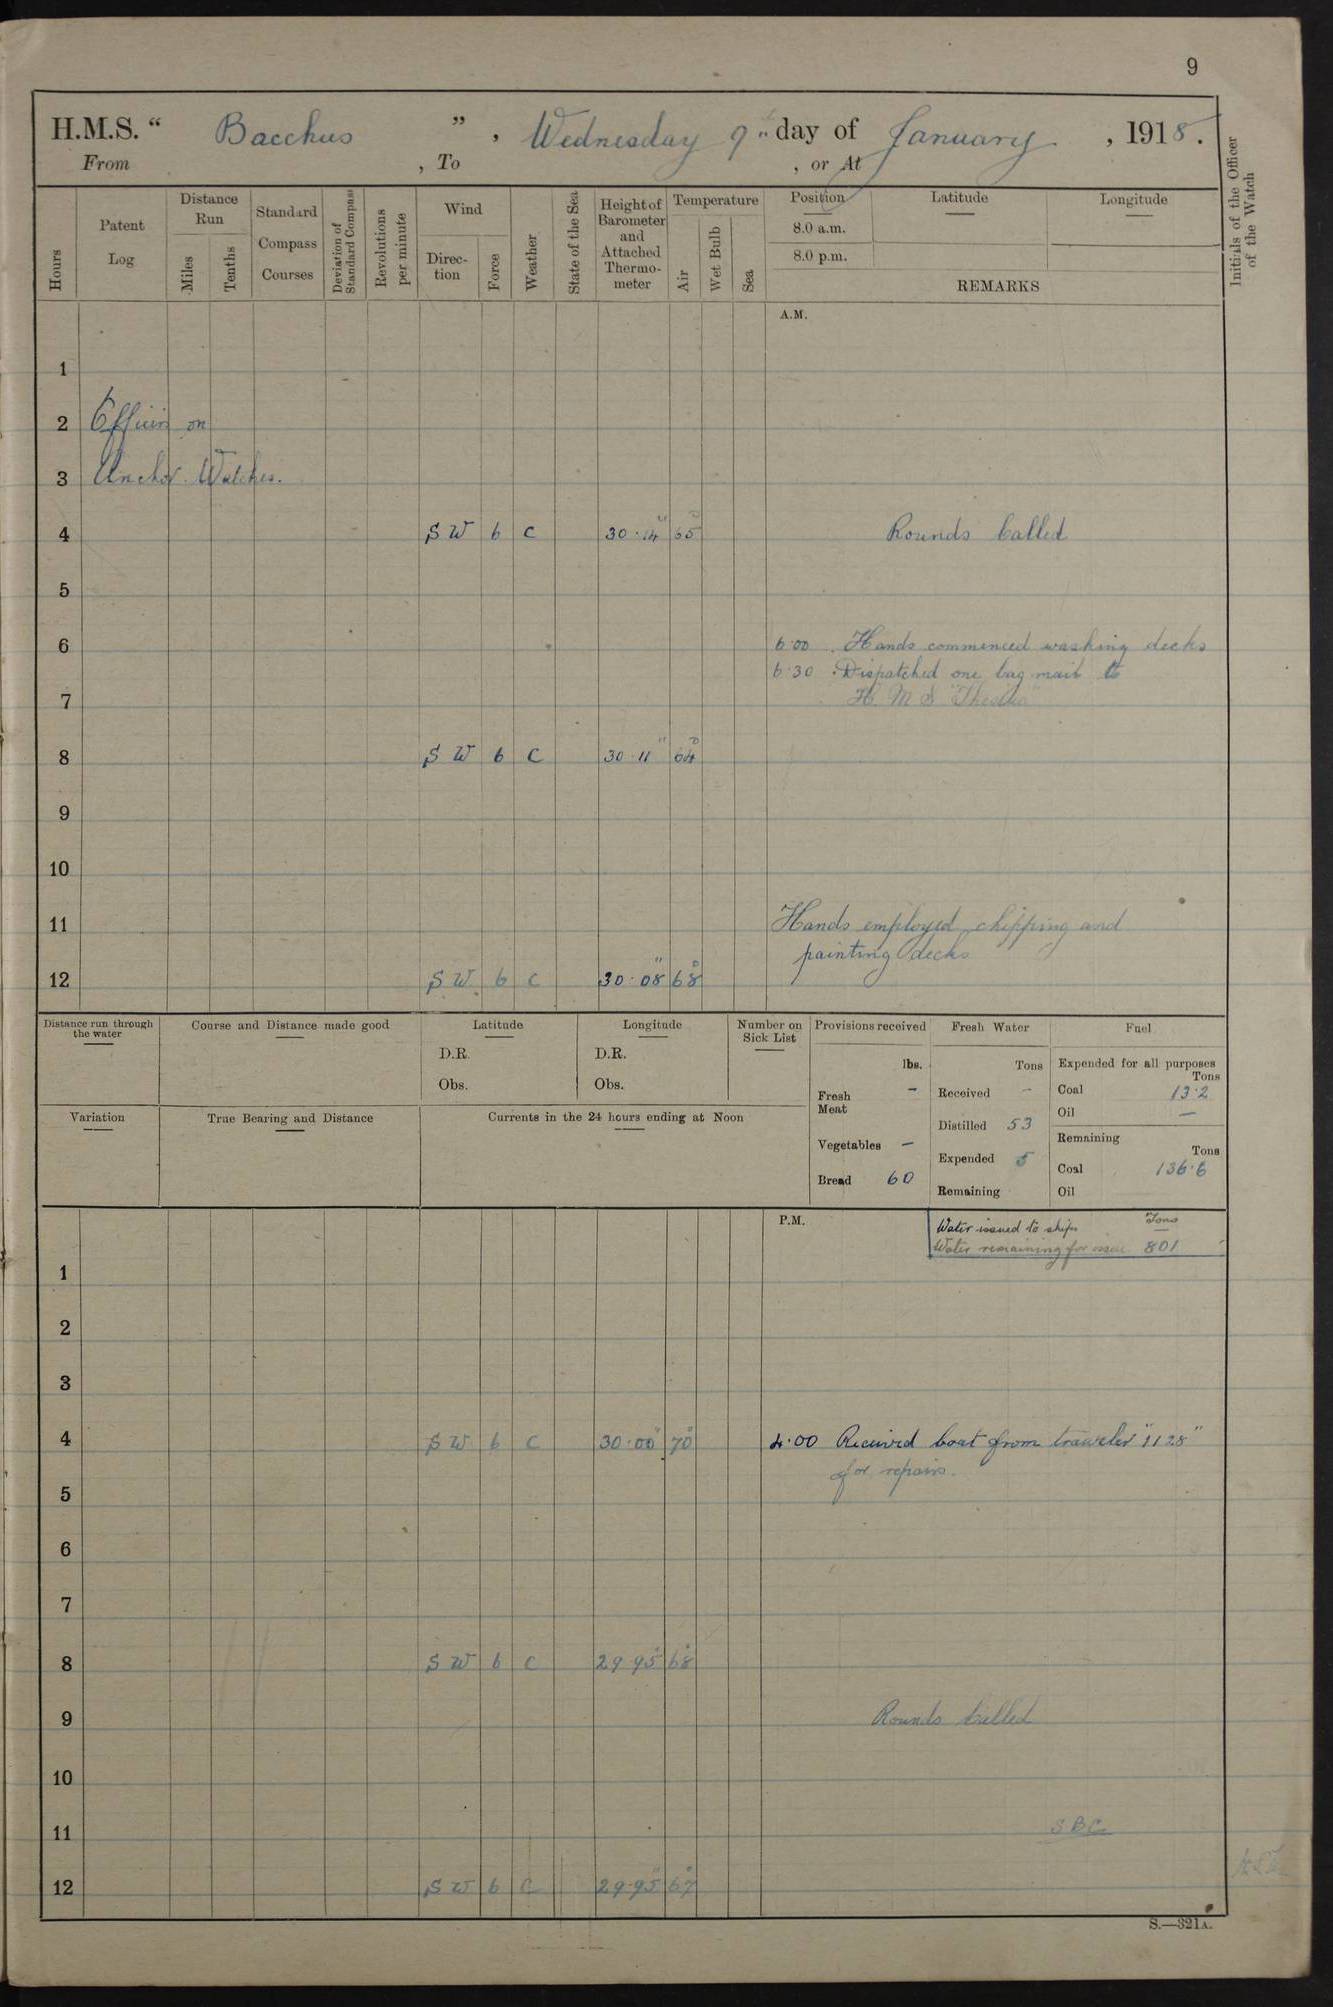 9
H.M.S. “ Bacchus ” , Wednesday 9th day of January , 1918.
From , To , or At
Hours
Patent Log
Distance Run
Miles
Tenths
Standard Compass Courses
Deviation of Standard Compass
Revolutions per minute
Wind
Direc-tion
Force
Weather
State of the Sea
Height of Barometer and Attached Thermo-meter
Temperature
Air
Wet Bulb
Sea
Position
8.0 a.m.
8.0 p.m.
Latitude
Longitude
REMARKS
Initials of the Officer of the Watch
A.M.
1
2 Officers on
3 Anchor Watches.
4 S W 6 C 30·14" 65° Rounds Called
5
6 6·00 . Hands commenced washing decks
6·30 . Dispatched one bag mail to
7 H M S "
8 S W 6 C 30·11" 64°
9
10
11 Hands employed chipping and
painting decks
12 S W 6 C 30·08" 68°
Distance run through the water
Course and Distance made good
Latitude
D.R.
Obs.
Longitude
D.R.
Obs.
Number on Sick List
Provisions received
lbs.
Fresh Meat –
Vegetables –
Bread 60
Fresh Water
Tons
Received –
Distilled 53
Expended 5
Remaining
Fuel
Expended for all purposes
Tons
Coal 13·2
Oil —
Remaining
Tons
Coal 136·6
Oil
Variation
True Bearing and Distance
Currents in the 24 hours ending at Noon
P.M.
Tons
Water issued to ships —
Water remaining for issue 801
1
2
3
4 S W 6 C 30·00" 70° 4·00 Received boat from trawler "1128"
for repairs.
5
6
7
8 S W 6 C 29·95" 68°
9 Rounds Called
10
11 S B C
12 S W 6 C 29·95" 67°
S.—321A.